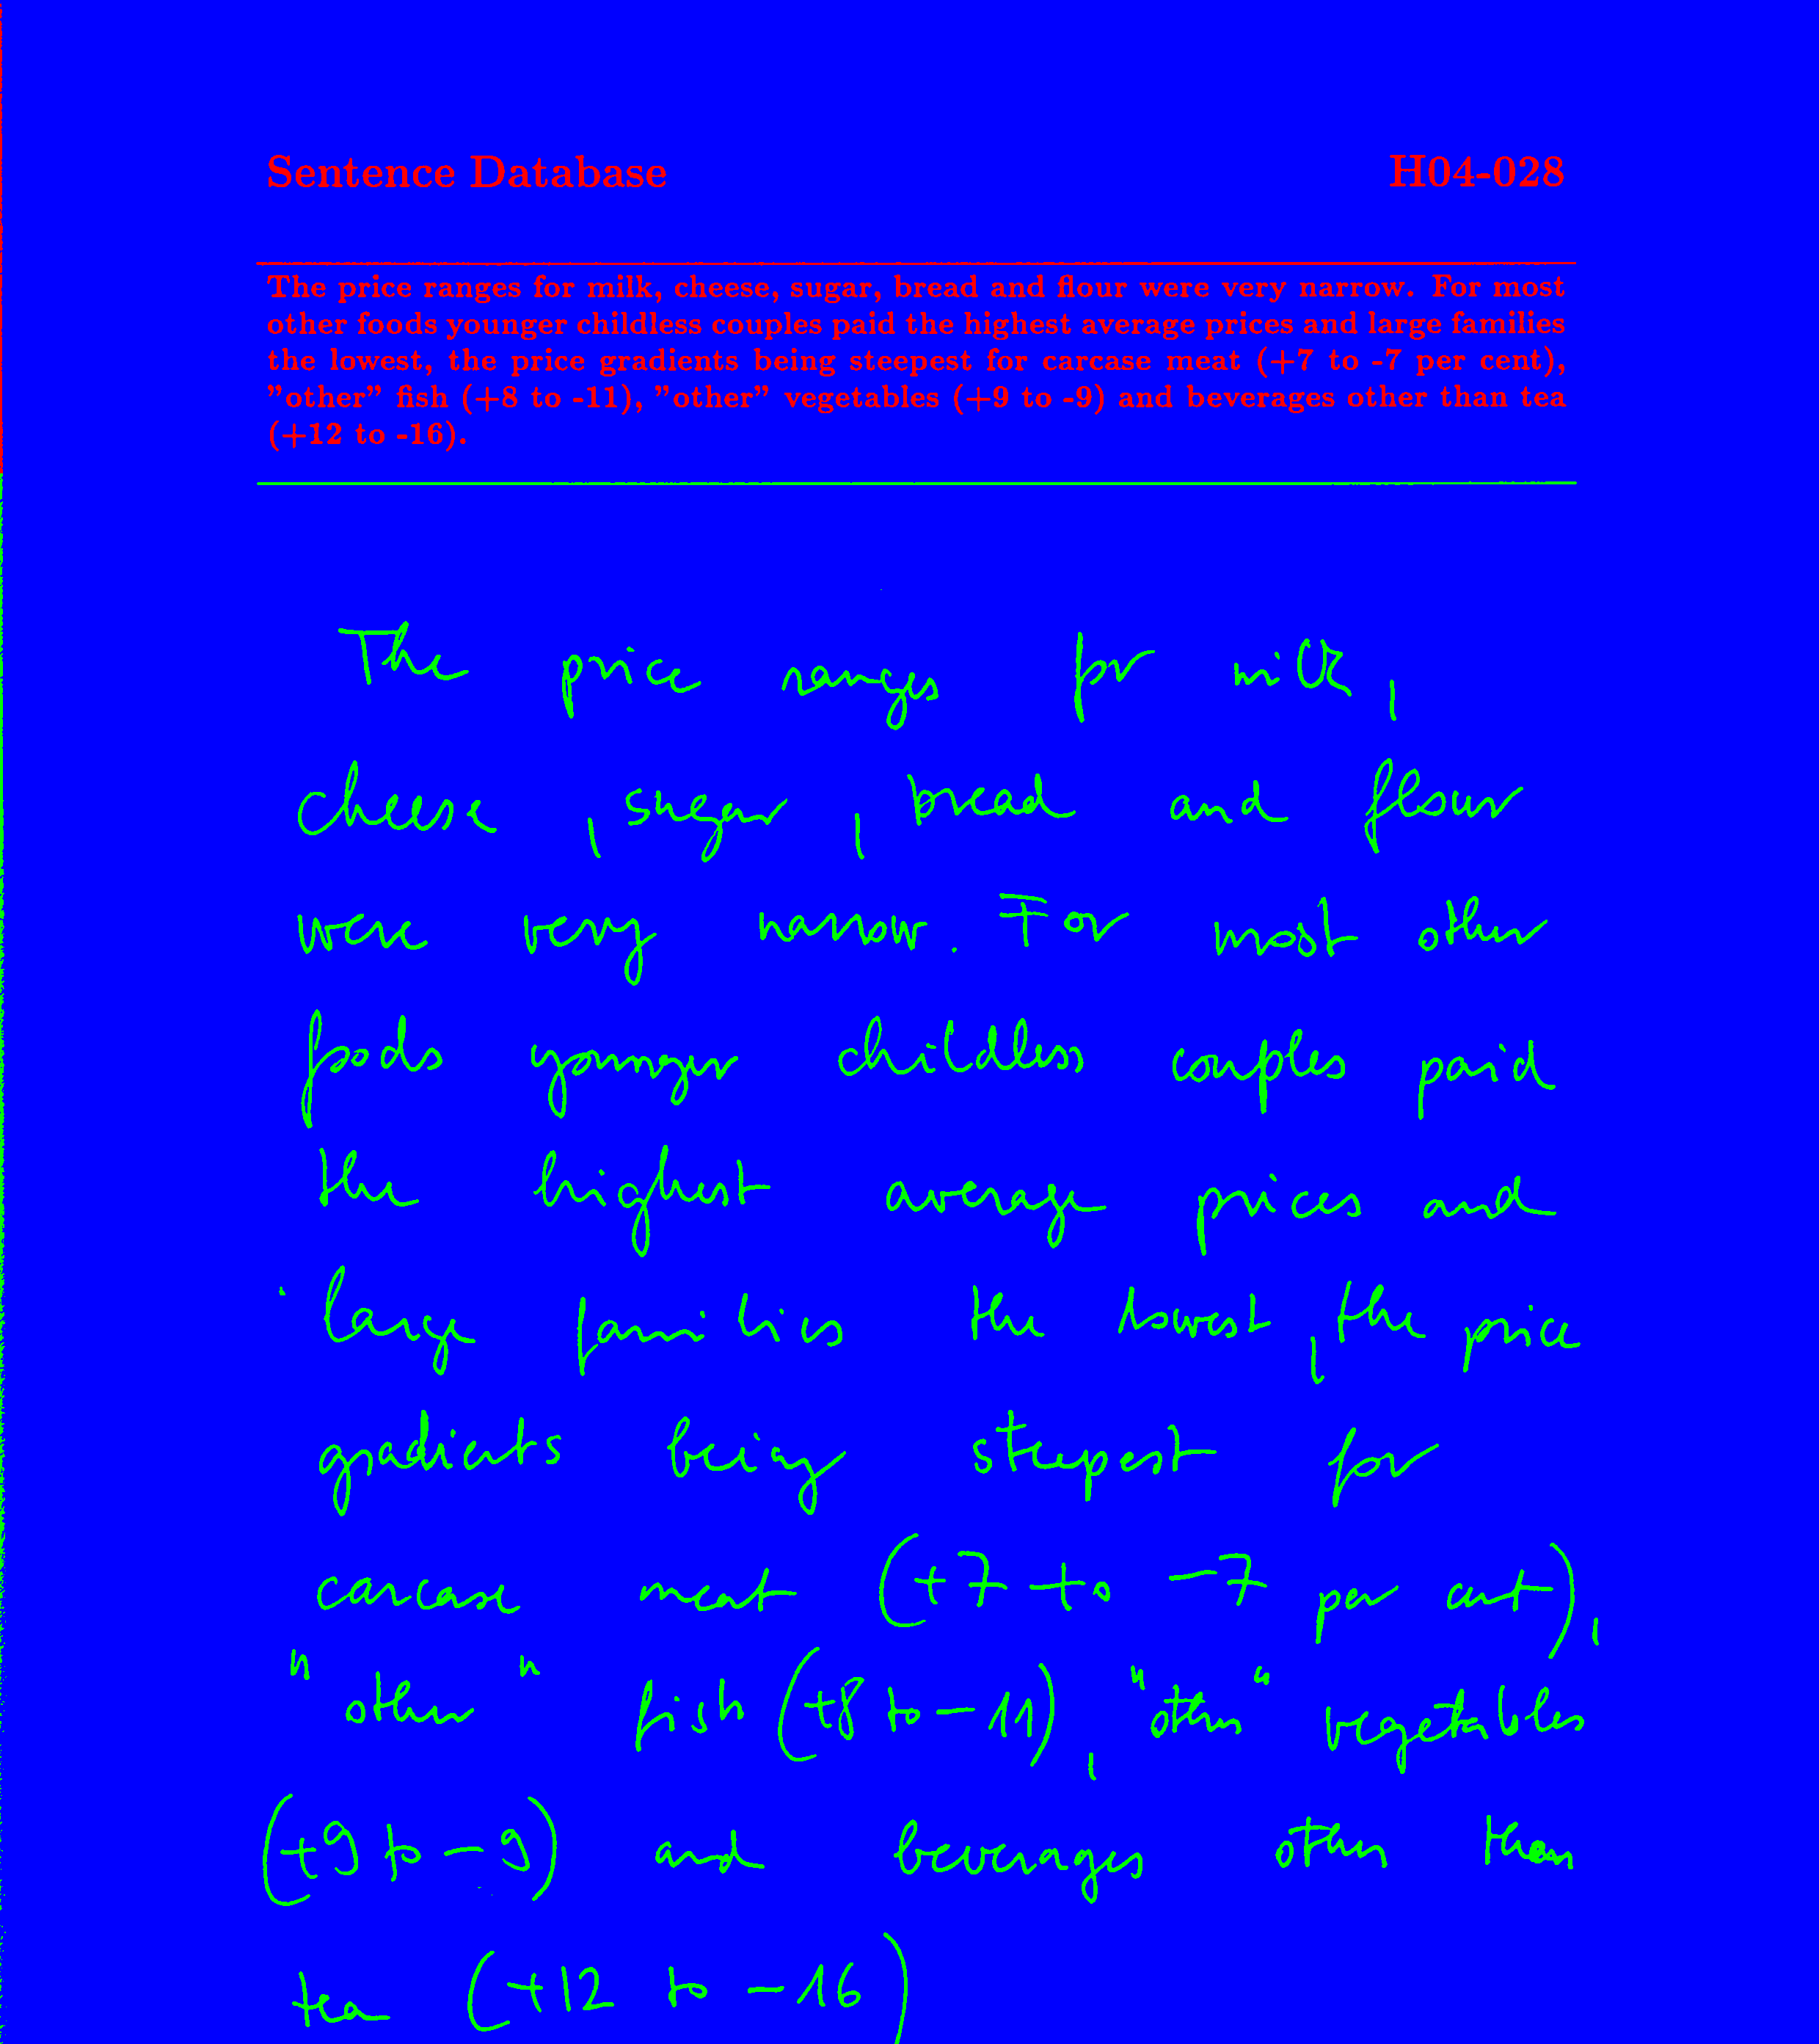 Sentence Database H04-028
The price ranges for milk, cheese, sugar, bread and flour were very narrow. For most
other foods younger childless couples paid the highest average prices and large families
the lowest, the price gradients being steepest for carcase meat (+7 to -7 per cent),
"other" fish (+8 to -11), "other" vegetables (+9 to -9) and beverages other than tea
(+12 to -16).
The price ranges for milk,
cheese, sugar, bread and flour
were very narrow. For most other
foods younger childless couples paid
the highest average prices and
large families the lowest, the price
gradients being steepest for
carcase meat (+7 to -7 per cent),
"other" fish (+8 to - 11), "other" vegetables
(+9 to - 9) and beverages other than
tea (+12 to - 16)